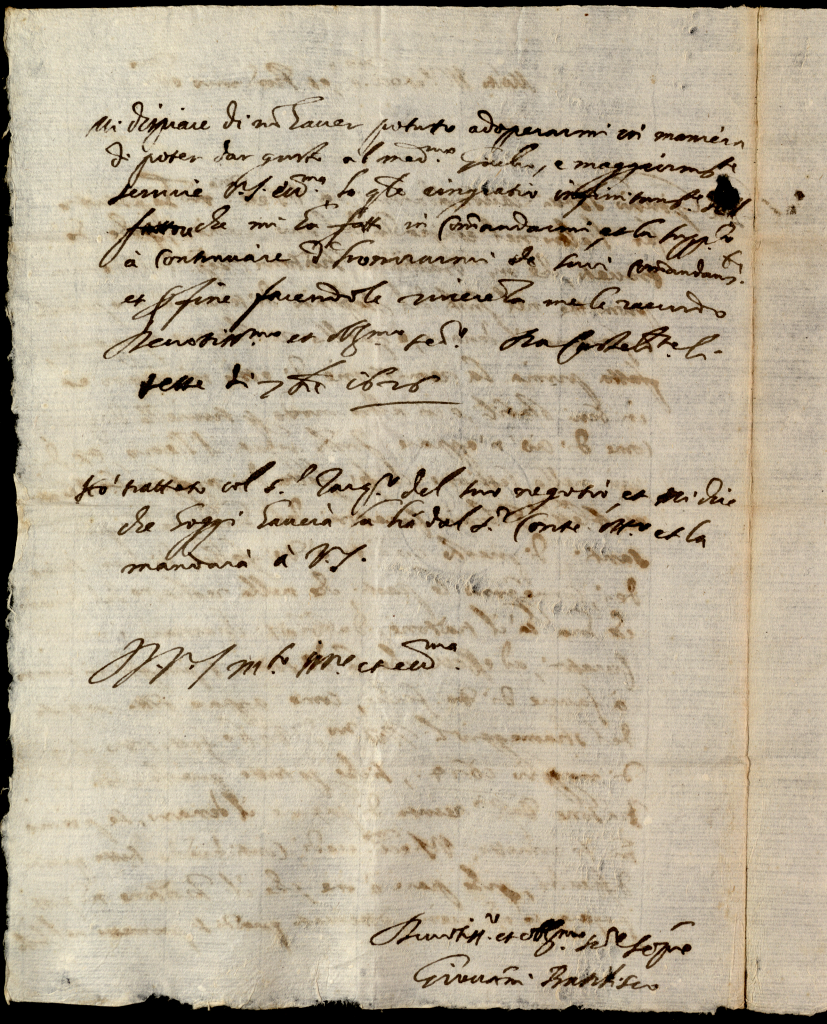 Mi dispiace di nõ haver potuto adoperarmi in maniera
di poter dar gusto al med.mo Giulio, e maggiorm.te
servire V.S. ecc.ma, lo q.le ringratio infinitam.te
che mi ha fatto in comandarmi, et la supp.co
à continuare d'honorarmi de suoi comandam.ti
et p fine facendole riverenza me le raccordo
Devotiss.mo et obl.mo ser.e Da li
sette di 7bre 1626
Hò trattato col S.r del suo negotio, et mi dice
che hoggi haverà la dal S.r Conte et la
mandarà à V.S.
D V.S. m.to Ill.re et ecc.ma
Devotiss.o et obl.mo ser.e sempre
Giovanni Battista